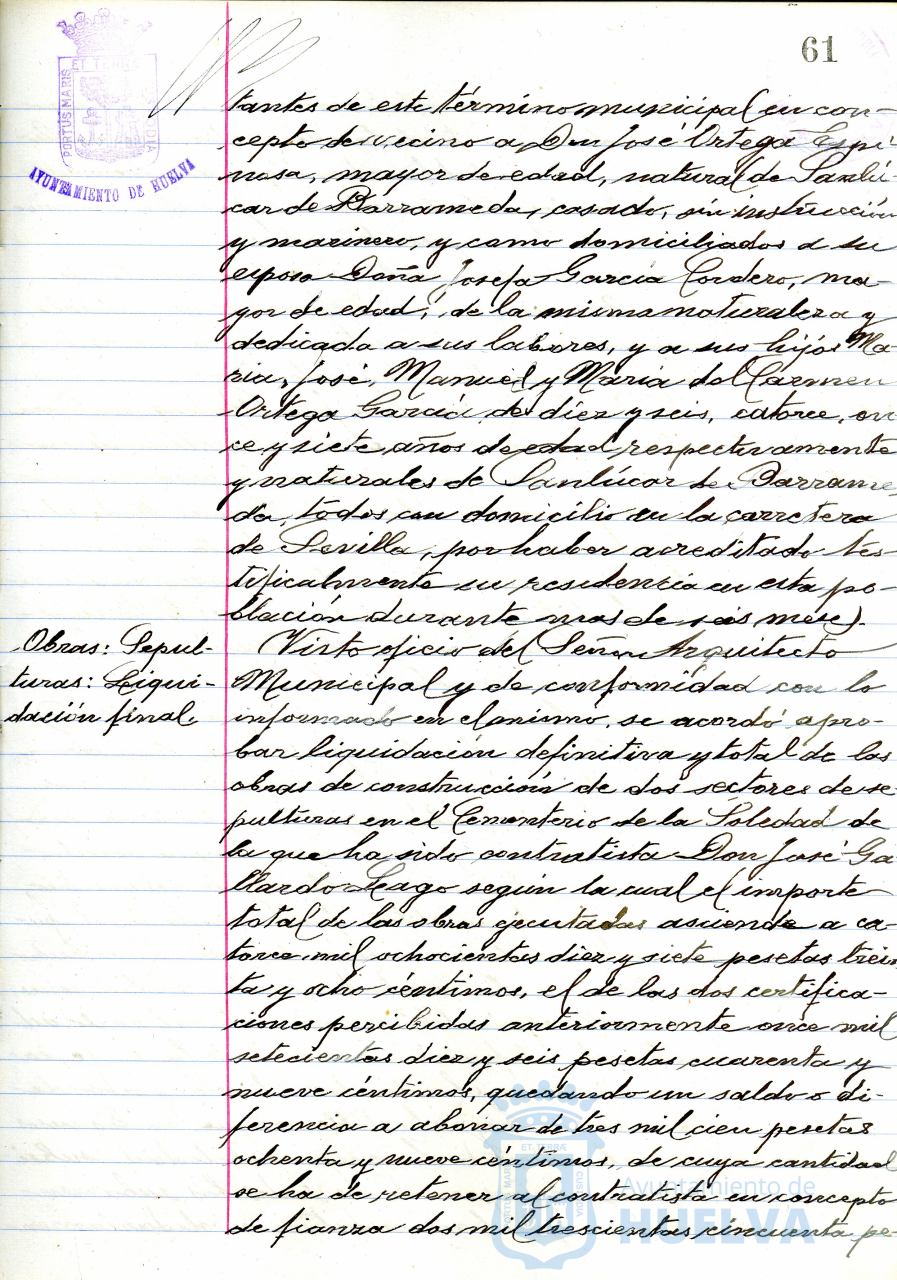 61
ET TERRÆ
PORTUS MARIS
AYUNTAMIENTO DE HUELVA
tantes de este término municipal en con-
cepto de vecino a Don José Ortega Espi-
nosa, mayor de edad, natural de Sanlú-
car de Barrameda, casado, sin instrucción
y marinero, y como domiciliados a su
esposa Doña Josefa García Cordero, ma-
yor de edad, de la misma naturaleza y
dedicada a sus labores, y a sus hijos Ma-
ria, José, Manuel y María del Carmen
Ortega García de diez y seis, catorce, on
ce y siete años de edad, respectivamente
y naturales de Sanlúcar de Barrame-
da, todos con domicilio en la carretera
de Sevilla, por haber acreditado tes-
tificalmente su residencia en esta po-
blación durante mas de seis meses.
Obras: Sepul-
turas: Liqui-
dación final.
Visto oficio del Señor Arquitecto
Municipal y de conformidad con lo
informado en el mismo, se acordó apro-
bar liquidación definitiva y total de las
obras de construcción de dos sectores de se-
pulturas en el Cementerio de la Soledad de
la que ha sido contratista Don José Ga-
llardo Leago según la cual el importe
total de las obras ejecutadas asciende a ca-
torce mil ochocientas diez y siete pesetas trein
ta y ocho céntimos, el de las dos certifica-
ciones percibidas anteriormente once mil
setecientas diez y seis pesetas cuarenta y
nueve céntimos, quedando un saldo o di-
ferencia a abonar de tres mil cien pesetas
ochenta y nueve céntimos, de cuya cantidad
se ha de retener al contratista en concepto
de fianza dos mil trescientas cincuenta pe-
ET TERRÆ
Ayuntamiento de
HUELVA